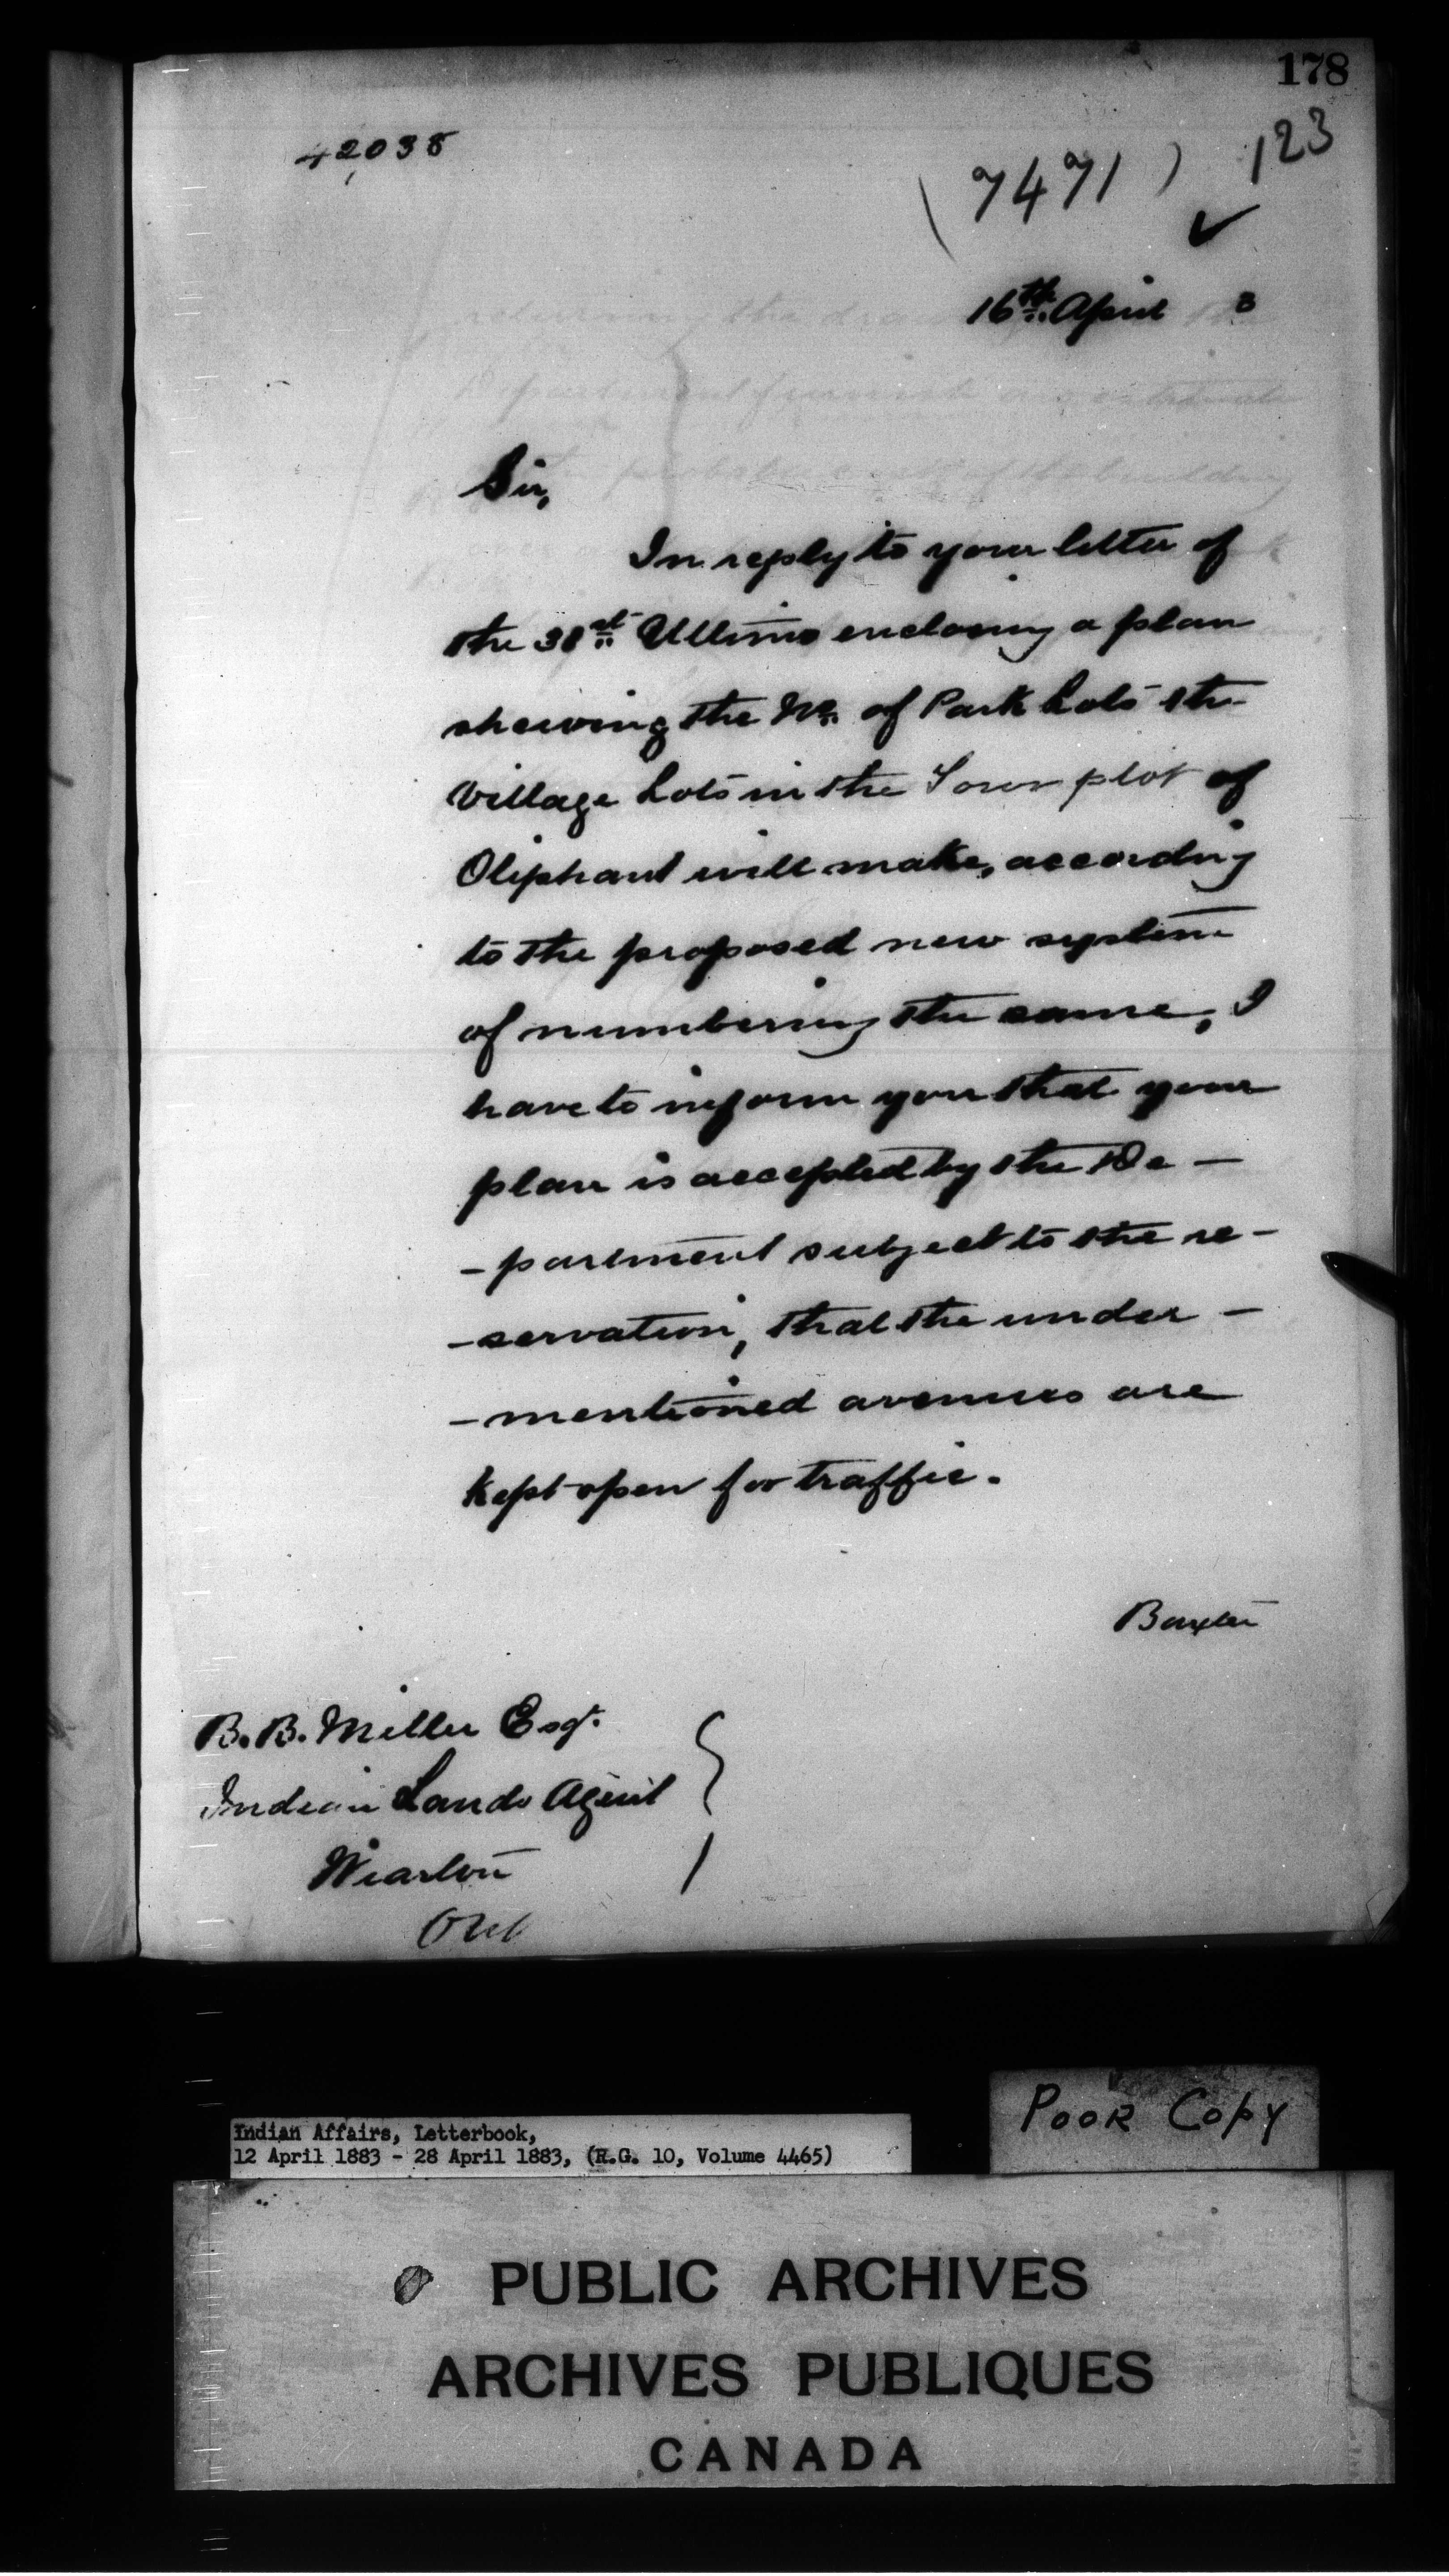 178
42,038
(7471) 123
16th April 3
Sir,
In reply to your letter of
the 31st Ultimo enclosing a plan
shewing the No. of Park Lots the
Village Lots in the Town plot of
Oliphant will make, according
to the proposed new system
of numbering the same, I
have to inform you that your
plan is accepted by the De-
-partment subject to the re-
-servation, that the under-
-mentioned avenues are
kept open for traffic.
Baxter
B. B. Miller Esqr.
Indian Lands Agent
Wiarton
Ont
POOR COPY
Indian Affairs, Letterbook,
12 April 1883 - 28 April 1883, (R.G. 10, Volume 4465)
PUBLIC ARCHIVES
ARCHIVES PUBLIQUES
CANADA